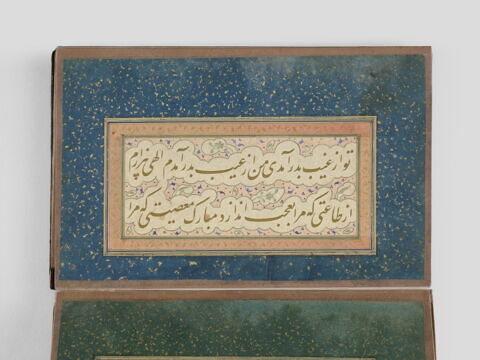 تو از غیب بدر آمدی من از عیب بدر آمدم الهی بیزارم
از طاعتی که مرا بعجب اندازد مبارک معصیتی که مرا